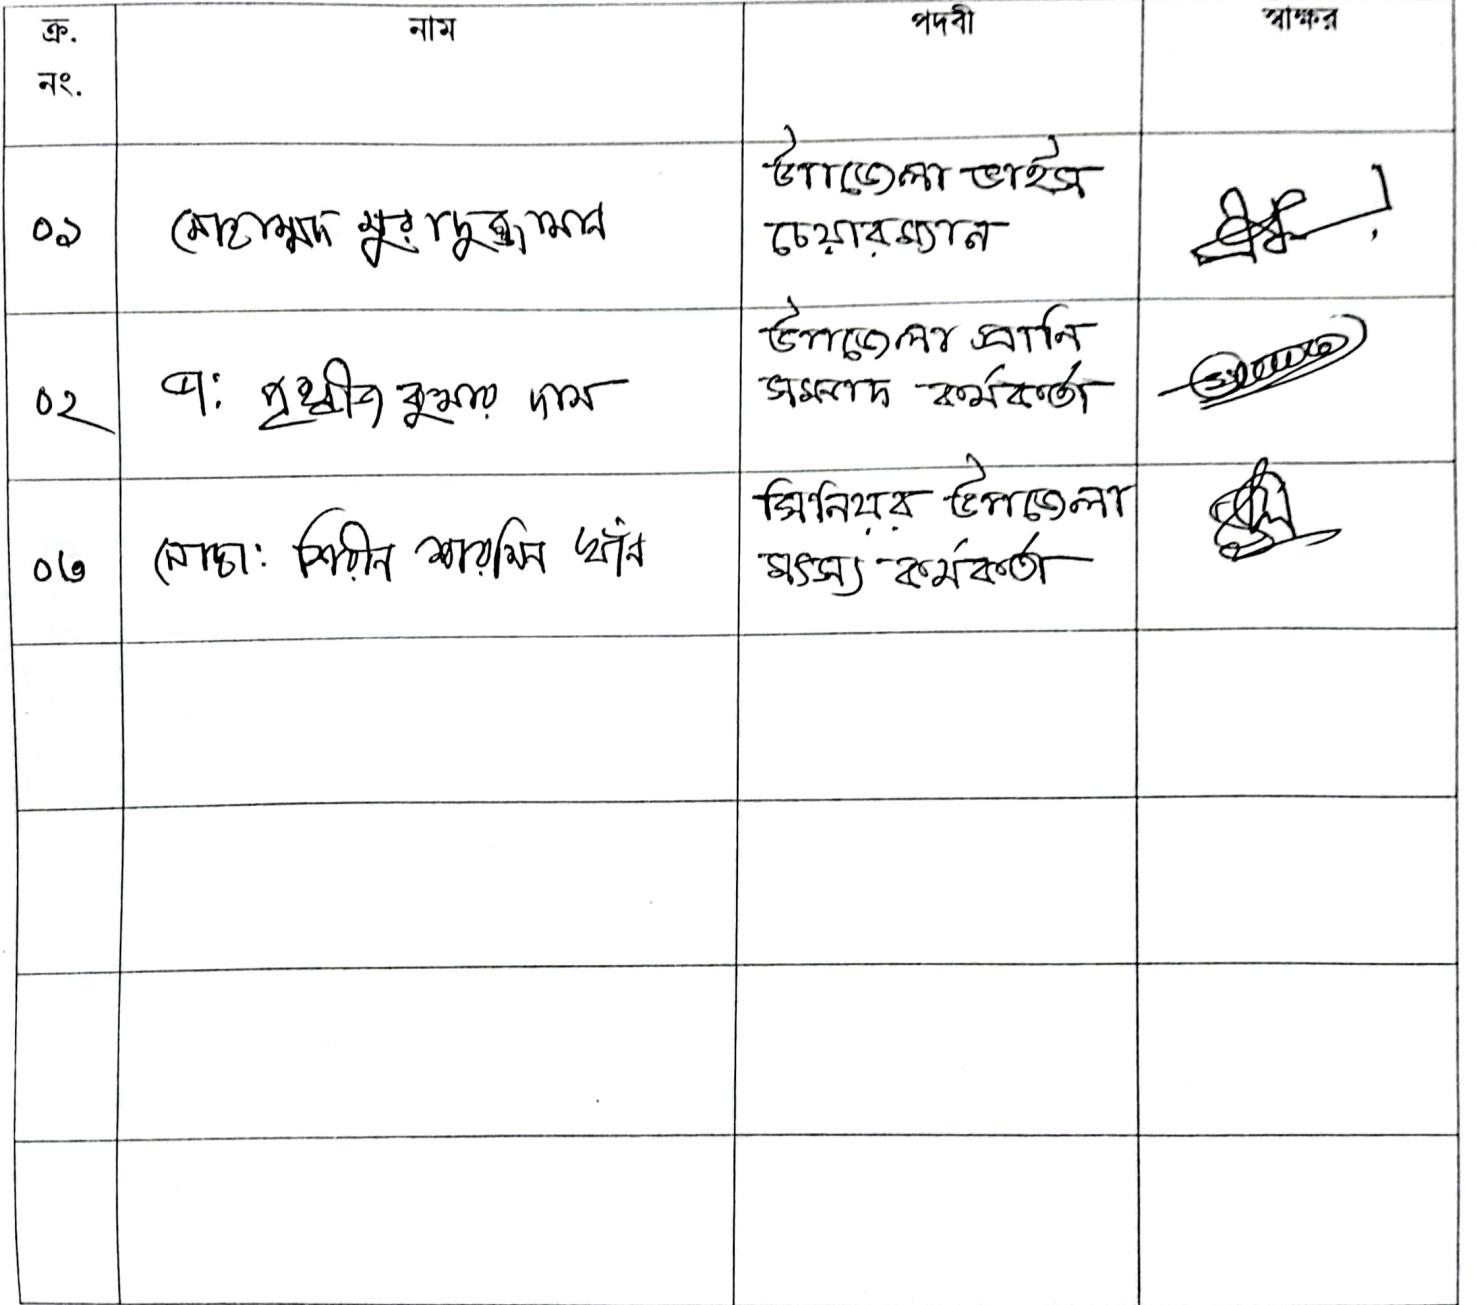 ক্র. নং.
নাম
পদবী
স্বাক্ষর
০১
মোহাম্মদ মুরাদুজ্জামান
উপজেলা ভাইস
চেয়ারম্যান
০২
কুমার দাস
উপজেলা প্রানি
সম্পদ কর্মকর্তা
০৩
মোছা: শিরীন শারমিন খাঁন
সিনিয়র উপজেলা
মৎস্য কর্মকর্তা